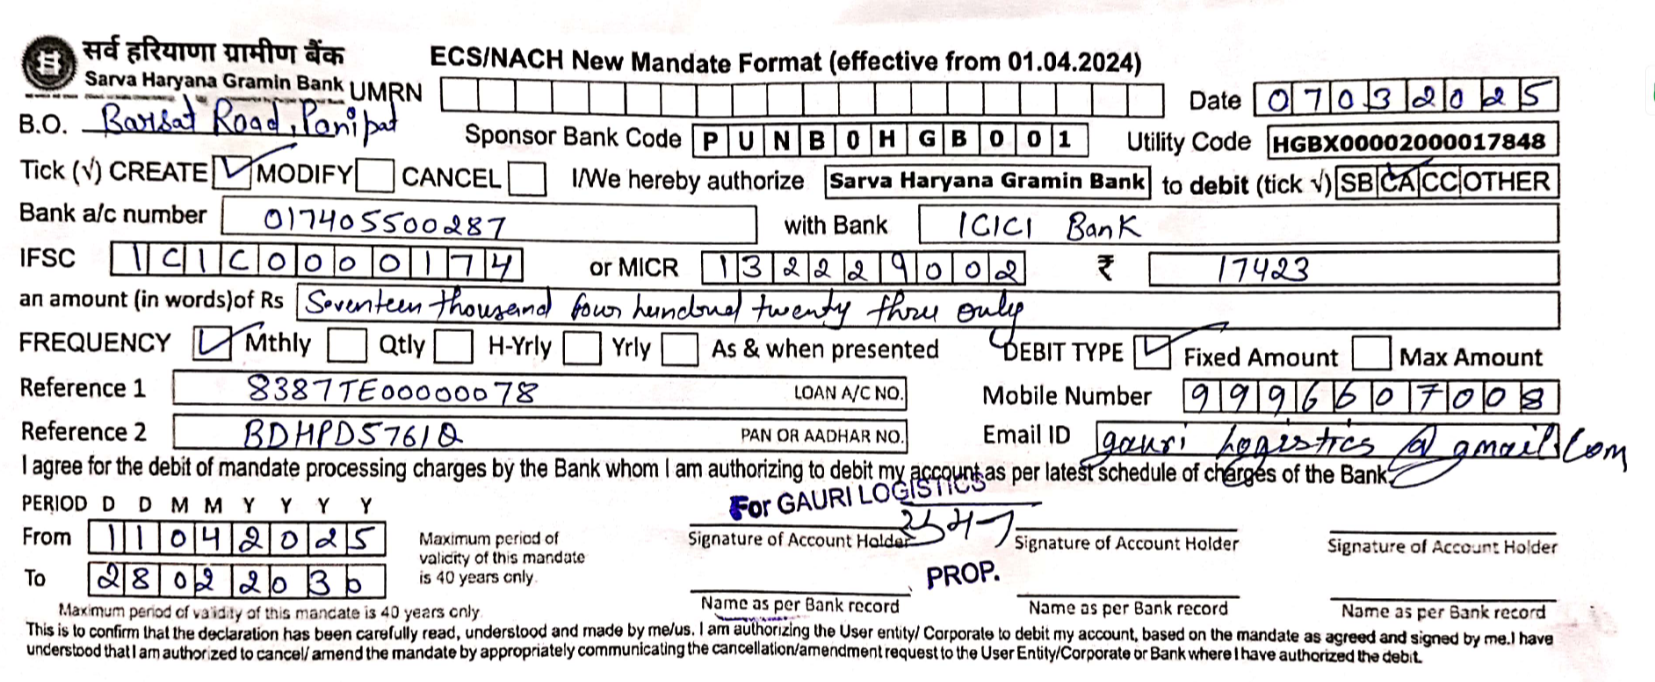 सर्व हरियाणा ग्रामीण बैंक
Sarva Haryana Gramin Bank
ECS/NACH New Mandate Format (effective from 01.04.2024)
UMRN
Date 07032025
B.O. Barsat Road, Panipat
Sponsor Bank Code PUNB0HGB001 Utility Code HGBX00002000017848
Tick (√) CREATE ✓ MODIFY CANCEL I/We hereby authorize Sarva Haryana Gramin Bank to debit (tick √) SB CA ✓ CC OTHER
Bank a/c number 017405500287 with Bank ICICI Bank
IFSC ICIC0000174 or MICR 132229002 ₹ 17423
an amount (in words)of Rs Seventeen thousand four hundred twenty three only
FREQUENCY ✓ Mthly Qtly H-Yrly Yrly As & when presented DEBIT TYPE ✓ Fixed Amount Max Amount
Reference 1 8387TE00000078 LOAN A/C NO. Mobile Number 9996607008
Reference 2 BDHPD5761Q PAN OR AADHAR NO. Email ID gauri logistics@gmail.com
I agree for the debit of mandate processing charges by the Bank whom I am authorizing to debit my account as per latest schedule of charges of the Bank.
PERIOD D D M M Y Y Y Y
For GAURI LOGISTICS
From 11042025
Maximum period of validity of this mandate is 40 years only.
Signature of Account Holder Signature of Account Holder Signature of Account Holder
To 28022036
PROP.
Name as per Bank record Name as per Bank record Name as per Bank record
Maximum period of validity of this mandate is 40 years only.
This is to confirm that the declaration has been carefully read, understood and made by me/us. I am authorizing the User entity/ Corporate to debit my account, based on the mandate as agreed and signed by me.I have
understood that I am authorized to cancel/ amend the mandate by appropriately communicating the cancellation/amendment request to the User Entity/Corporate or Bank where I have authorized the debit.